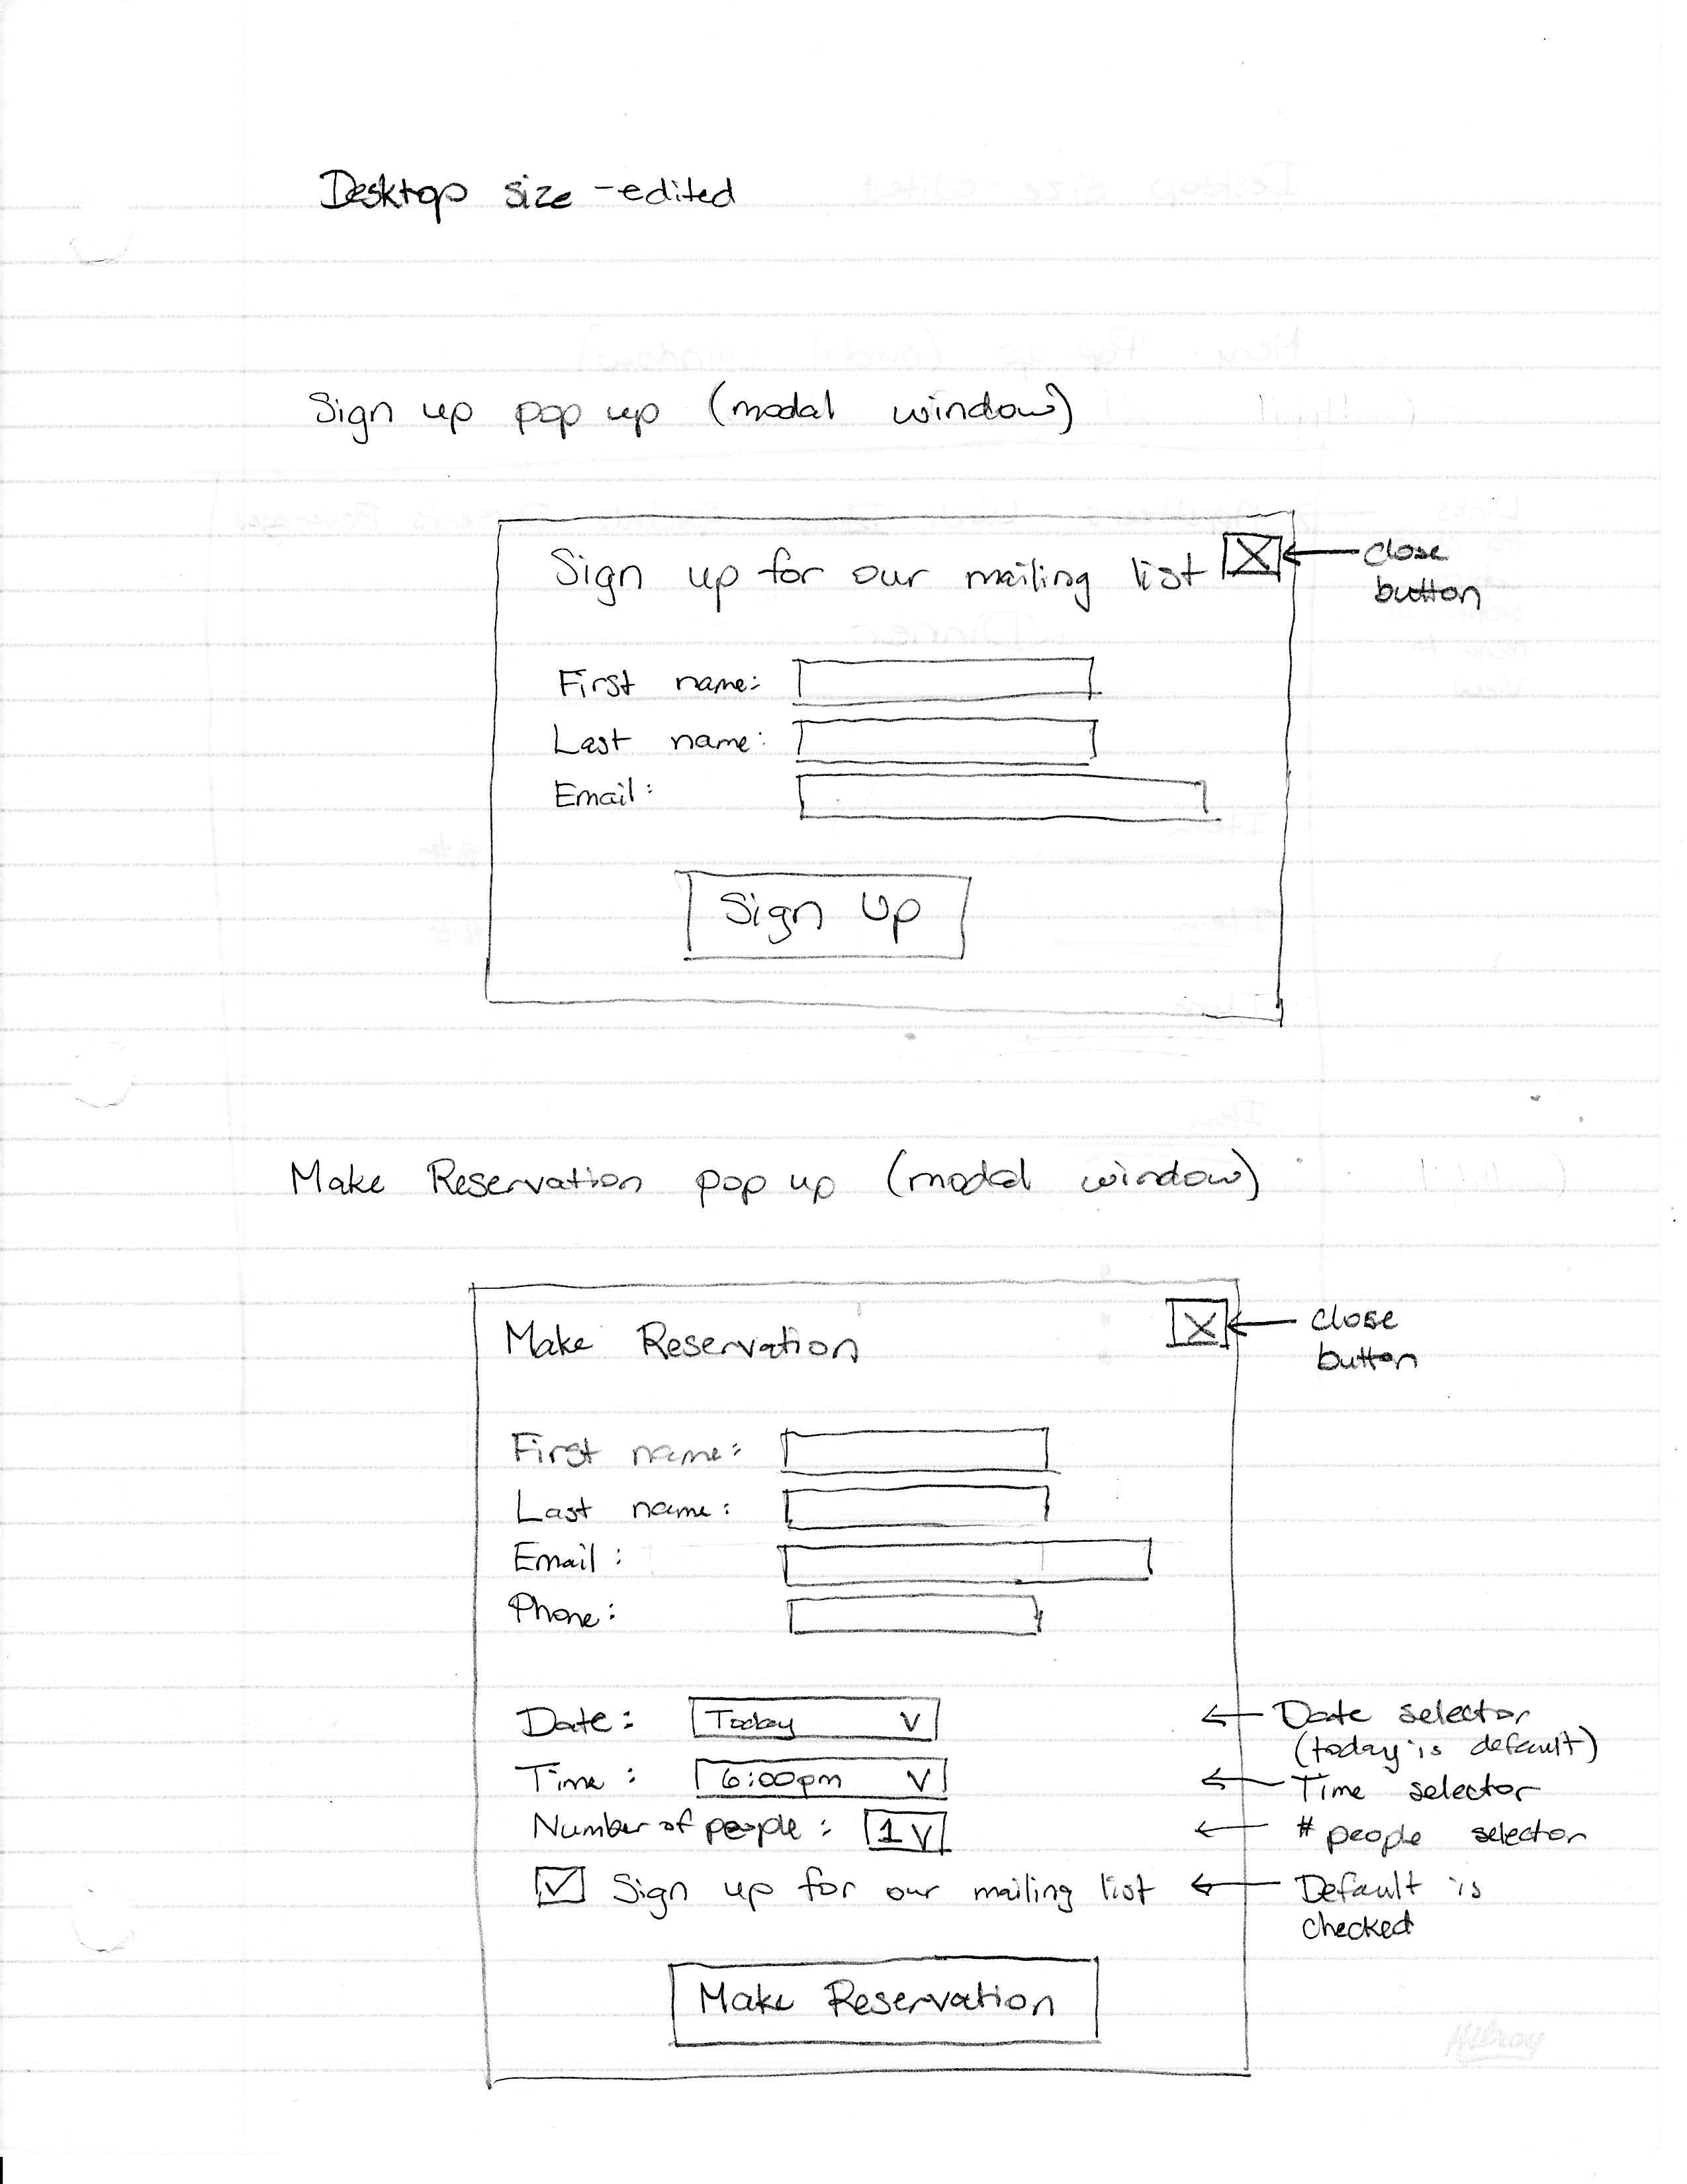 Desktop size - edited
Sign up pop up (modal window)
Sign up for our mailing list X
close
button
First name:
Last name:
Email:
Sign Up
Make Reservation pop up (modal window)
Make Reservation X
close
button
First name:
Last name:
Email:
Phone:
Date: Today V
Date selector
(today is default)
Time: 6:00pm V
Time selector
Number of people: 1 V
# people selector
Sign up for our mailing list
Default is
checked
Make Reservation
Hilroy